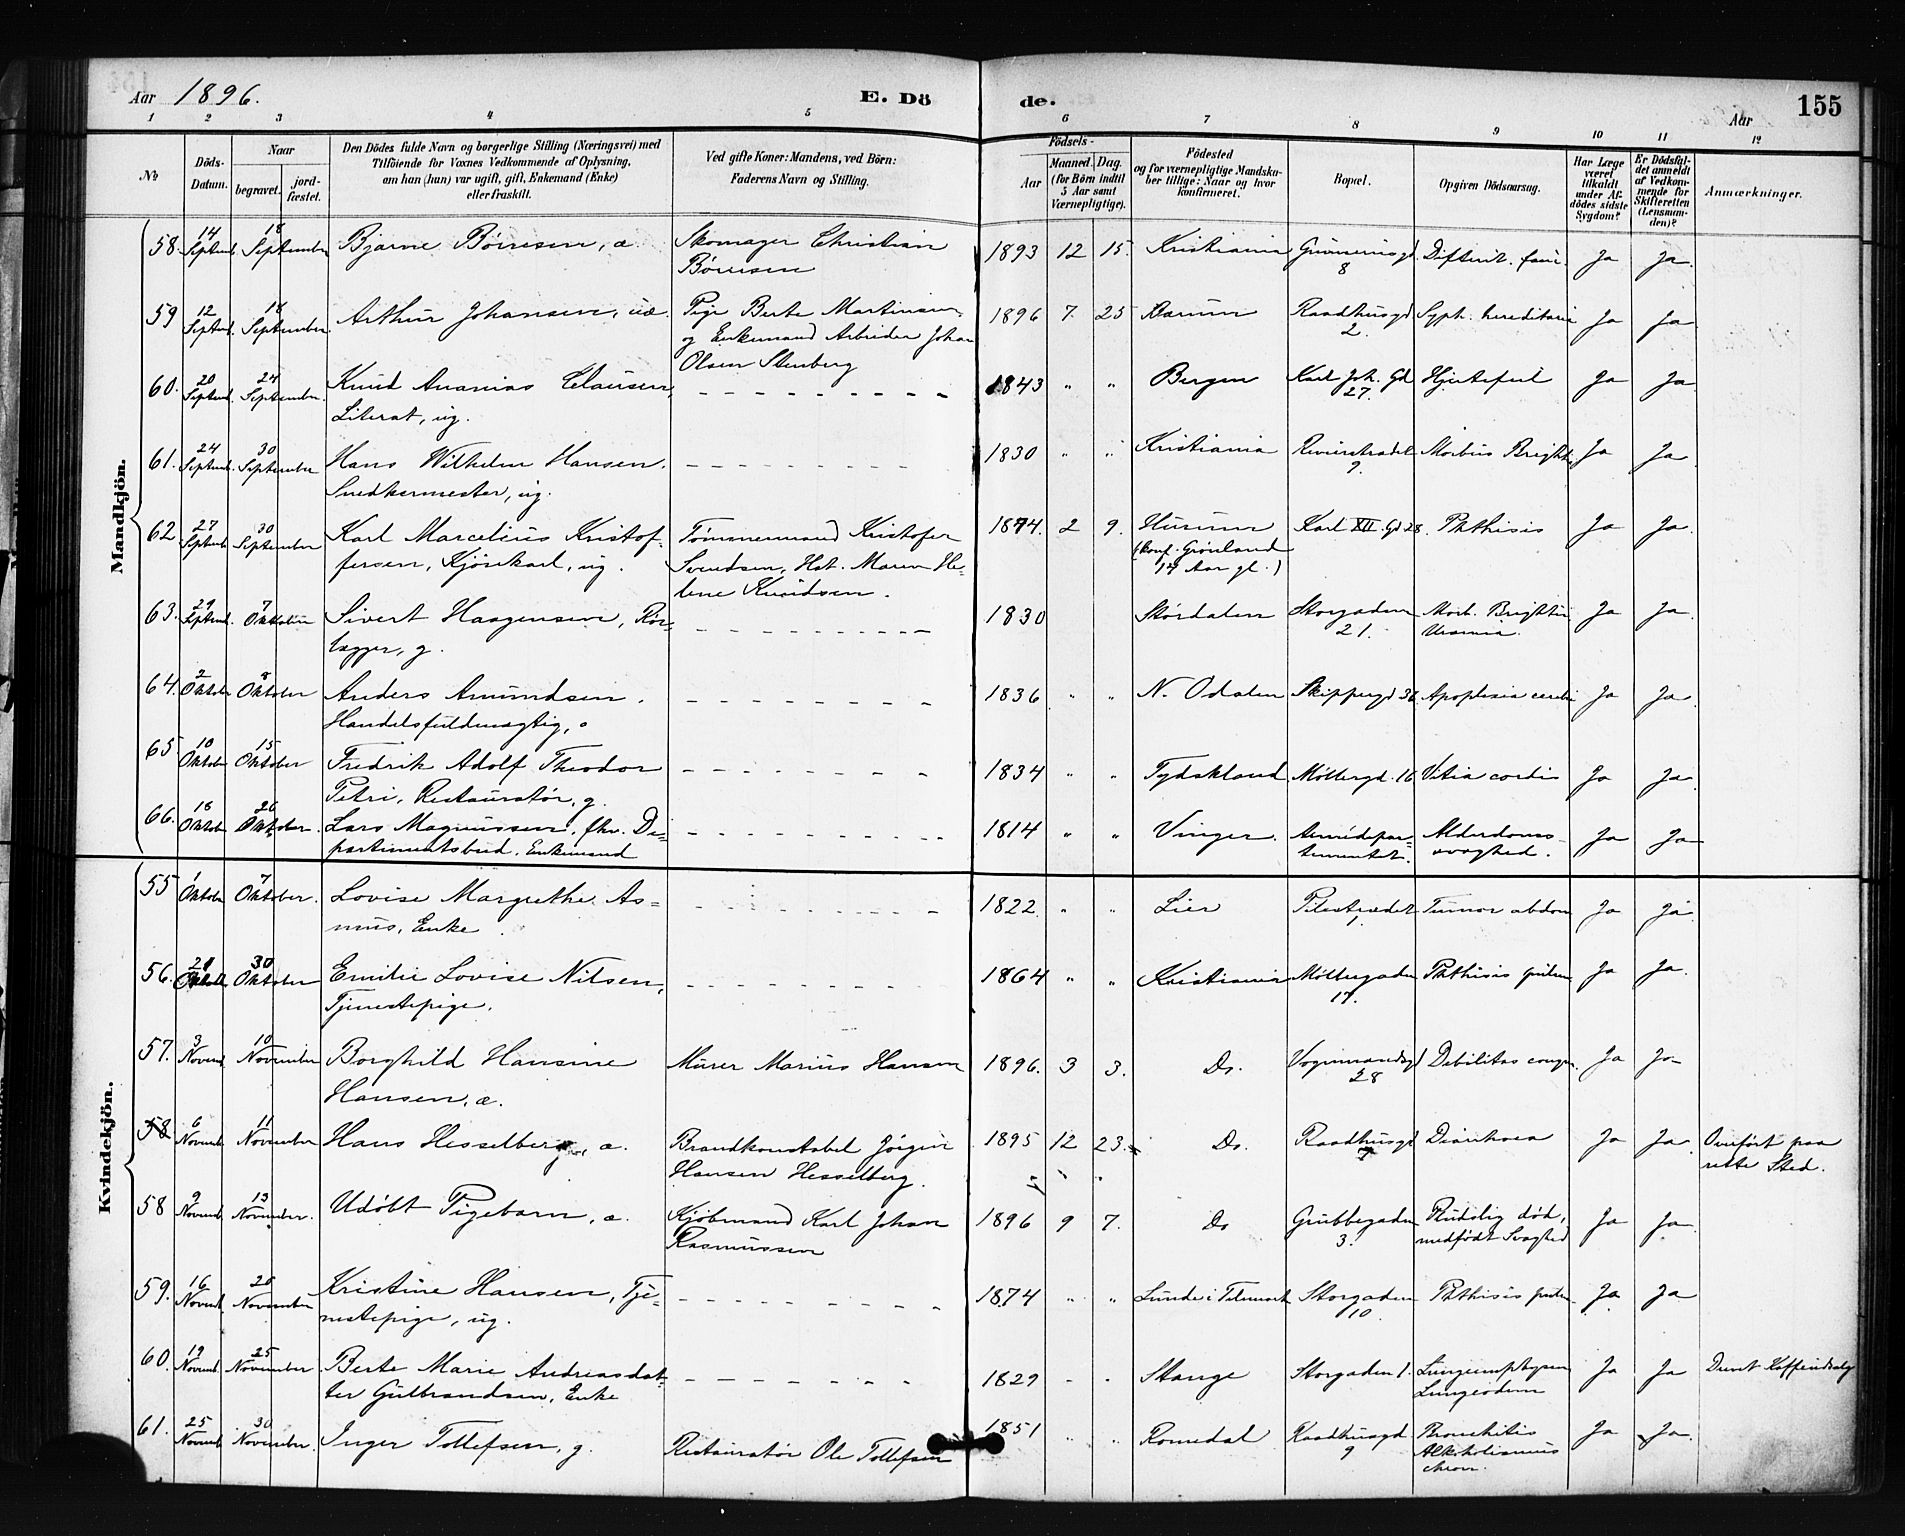 Aar 1896. E. Dö de. Aar 155
1 2 3 4 5 6 7 8 9 10 11 12
No Döds-Datum. Naar begravet. jord-fæstet. Den Dödes fulde Navn og borgerlige Stilling (Næringsvei) med Tilföiende for Voxnes Vedkommende af Oplysning, om han (hun) var ugift, gift, Enkemand (Enke) eller fraskilt. Ved gifte Koner: Mandens, ved Börn: Faderens Navn og Stilling. Födsels- Aar Maaned. Dag. (for Börn indtil 5 Aar samt Værnepligtige). Födested og for værnepligtige Mandskaber tillige: Naar og hvor konfirmeret. Bopæl. Opgiven Dödsaarsag. Har Læge været tilkaldt under Afdödes sidste Sygdom? Er Dödsfaldet anmeldt af Vedkommende for Skifteretten (Lensmanden)? Anmærkninger.
Mandkjön.
58. 14 Septemb. 18 September Bjarne Börresen, æ. Skomager Christian Börresen 1893 12 15. Kristiania Grünersgd. 8 Difterit. fauc. Ja Ja.
59 12 Septemb. 18 September Arthur Johansen, uæ. Pige Berte Martinsen og Enkemand Arbeider Johan Olsen Stenberg 1896 7. 25 Bærum Raadhusgd 2. Syph. hereditaria Ja Ja
60. 20 Septemb. 24 September. Knud Ananias Clausen, Literat, ug. 1843 " " Bergen Karl Joh. Gd 27. Hjertefeil Ja Ja
61. 24 Septemb. 30 September Hans Wilhelm Hansen. Snedkermester, ug. 1830 " " Kristiania Revierstrædet 9. Morbus Brighti Ja Ja
62 27 Septemb 30 September Karl Marcelius Kristoffersen, Kjørekarl, ug. Tømmermand Kristofer Svendsen, Hst. Maren Helene Knudsen. 1874. 2 9. Hurum (konf. Grønland 14 Aar gl.) Karl XII. Gd 28. Phthisis Ja Ja.
63. 29 Septemb. 7 Oktober Sivert Haagensen, Rørlægger, g. 1830 Størdalen Storgaden 21. Morb. Brightii Uræmia. Ja Ja
64. 2 Oktober 8 Oktober Anders Amundsen. Handelsfuldmægtig, 1836 " " N. Odalen Skippergd 36 Apoplexia cerebri Ja Ja
65 10 Oktober 15 Oktober Fredrik Adolf Theodor Petri, Restauratør, g. 1834 " " Tydskland Møllergd. 16 Vitia cordis Ja Ja.
66. 18 Oktob. 26 Oktober. Lars Magnussen, fhv. Departementsbud. Enkemand 1814 " " Vinger. Armédepartementet. Alderdomssvaghed. Ja Ja
Kvindekjön.
55 1 Oktober 7 Oktober. Lovise Margrethe Asmus, Enke 1822. " " Lier Pilestrædet Tumor abdom Ja Ja
56. 21 Oktob 30 Oktober Emilie Lovise Nilsen, Tjenestepige. 1864 " " Kristiania Møllergaden 17. Phthisis pulm Ja Ja.
57. 3 Novemb. 10 November Borghild Hansine Hansen, æ. Murer Marius Hansen 1896. 3 3. Do. Vognmandsgd 28 Debilitas congen. Ja Ja
58 6 Novemb. 11 November Hans Hesselberg, æ. Brandkonstabel Jørgen Hansen Hesselberg. 1895 12 23. Do. Raadhusgd 7 Diarrhoea Ja Ja. Overført paa rette Sted.
58 9 Novemb. 13 November. Udöbt Pigebarn, æ. Kjöbmand Karl Johan Rasmussen 1896 9 7. Do Grubbegaden 3. Pludslig död, medfödt Svaghed Ja Ja
59. 16 Novemb. 20 November Kristine Hansen, Tjenestepige, ug. 1874 " " Lunde i Telemark Storgaden 10. Phthisis pulm. Ja Ja
60. 19 Novemb. 25 November Berte Marie Andreasdatter Gulbrandsen, Enke 1829 Stange Storgaden 1. Lungeemphysem Lungeödem Ja Ja Drevet Kaffeudsalg
61. 25 Novemb 30 November. Inger Tollefsen, g. Restauratør Ole Tollefsen 1851 " " Romedal Raadhusgd 9 Bronchitis Alkoholismus chron. Ja Ja.